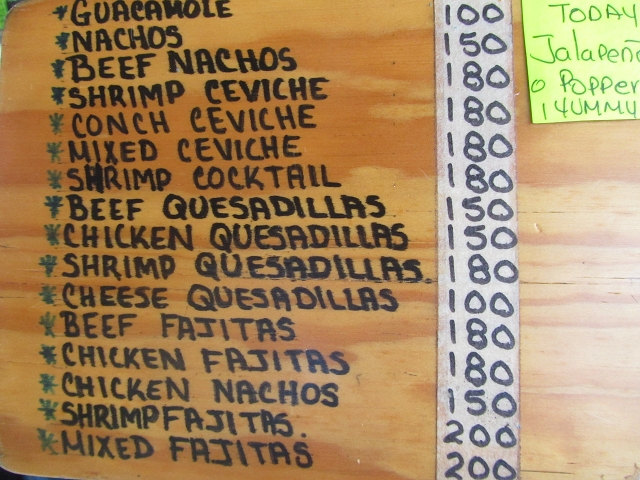 *GUACAMOLE 100
*NACHOS 150
*BEEF NACHOS 180
*SHRIMP CEVICHE 180
*CONCH CEVICHE 180
*MIXED CEVICHE 180
*SHRIMP COCKTAIL 180
*BEEF QUESADILLAS 150
*CHICKEN QUESADILLAS 150
*SHRIMP QUESADILLAS. 180
*CHEESE QUESADILLAS 100
*BEEF FAJITAS 180
*CHICKEN FAJITAS 180
*CHICKEN NACHOS 150
*SHRIMP FAJITAS. 200
*MIXED FAJITAS 200
TODAY
Jalapeño
POPPER
YUMMY